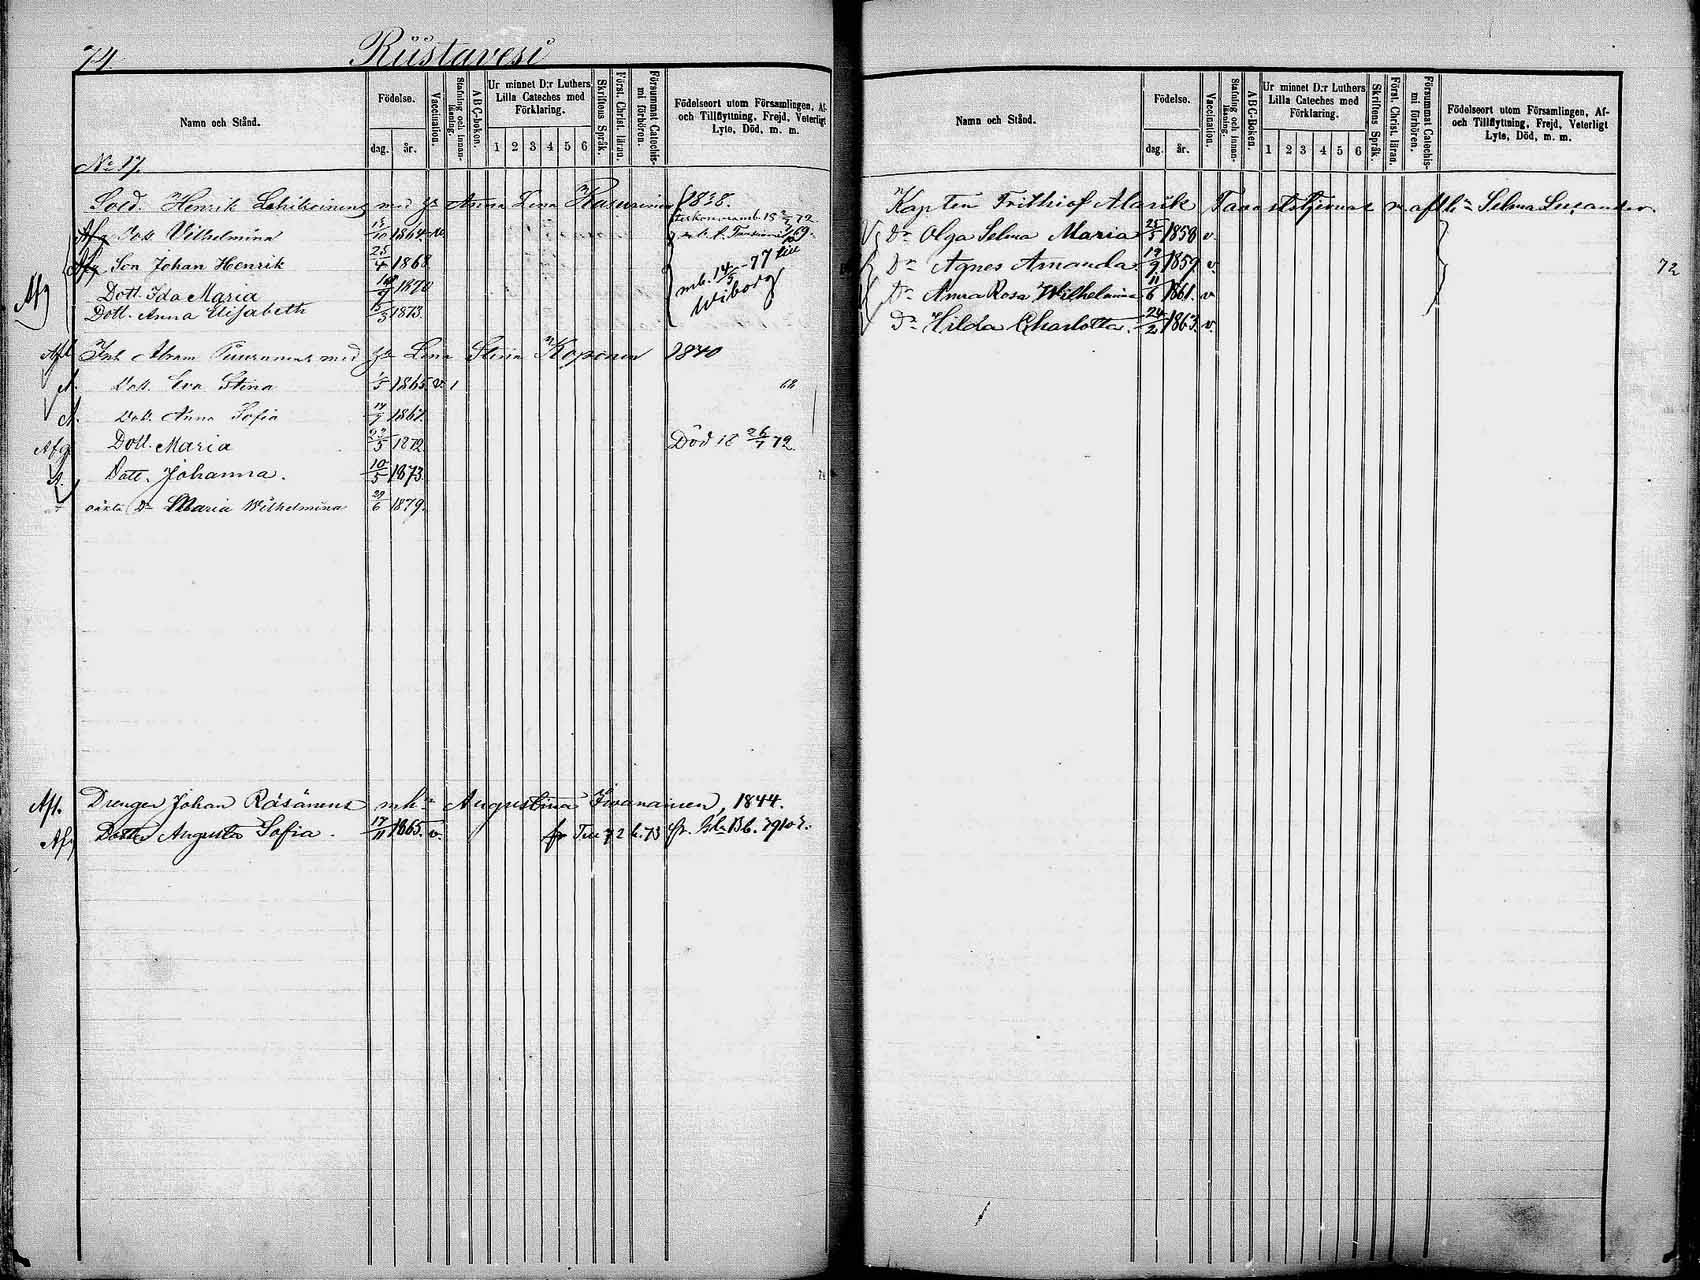 74.
Riistavesi
Namn och Stånd.
Födelse.
dag. år.
Vaccination.
Stafning och innan-läsning.
A B C-boken.
Ur minnet D:r Luthers Lilla Cateches med Förklaring.
1 2 3 4 5 6
Skriftens Språk.
Först. Christ. läran.
Försummat Catechis-mi förhören.
Födelseort utom Församlingen, Af- och Tillflyttning, Frejd, Veterligt Lyte, Död, m. m.
No 17.
Sold. Henrik med Anna Lena 1838.
Afg Dott. Vilhelmina 15/10 1864 v.
Afg Son Johan Henrik 25/4 1868 mb. 14/5 -77 till Wiborg
Afg
Dott. Ida Maria 1870
Dott. Anna Elisabeth 1873.
Afl. Inh. Abram med Lena Stina Koponen 1840
A. Dott. Eva Stina 1/5 1865 v. 1
A. Dott. Anna Sofia 1867.
Afg Dott. Maria 1872 Död 18 26/7 72
A. Dott. Johanna. 10/5 1873.
oäkta Dr Maria Wilhelmina 29/6 1879.
Afl. Drengen Johan Räsänens Augustina 1844.
Afg Dotter Augusta Sofia. 17/11 1865. v.
Namn och Stånd.
Födelse.
dag. år.
Vaccination.
Stafning och innan-läsning.
A B C-Boken.
Ur minnet D:r Luthers Lilla Cateches med Förklaring.
1 2 3 4 5 6
Skriftens Språk.
Först. Christ. läran.
Försummat Catechis-mi förhören.
Födelseort utom Församlingen, Af- och Tillflyttning, Frejd, Veterligt Lyte, Död, m. m.
Kapten Frithiof Alarik Tavaststjernas m. afl. Selma Lucander.
Dr Olga Selma Maria 25/5 1858 v.
Dr Agnes Amanda. 19/9 1859 v. 72
Dr Anna Rosa Wilhelmina 11/6 1861. v
Dr Hilda Charlotta. 24/2 1863. v.